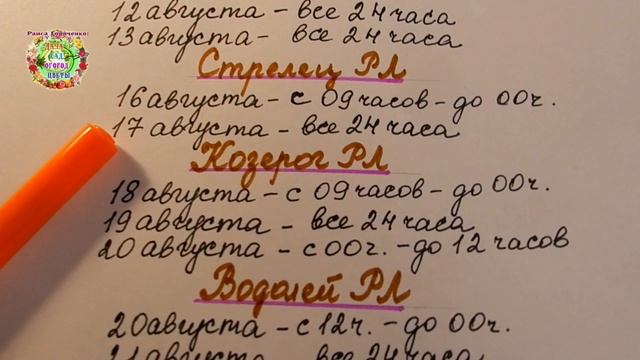 Раиса Горяченко:
ДАЧА
САД
ОГОРОД
ЦВЕТЫ
12 августа - все 24 часа
13 августа - все 24 часа
Стрелец РЛ
16 августа - с 09 часов - до 00ч.
17 августа - все 24 часа
Козерог РЛ
18 августа - с 09 часов - до 00ч.
19 августа - все 24 часа
20 августа - с 00ч. - до 12 часов
Водолей РЛ
20 августа - с 12ч. - до 00ч.
21 августа - все 24 часа